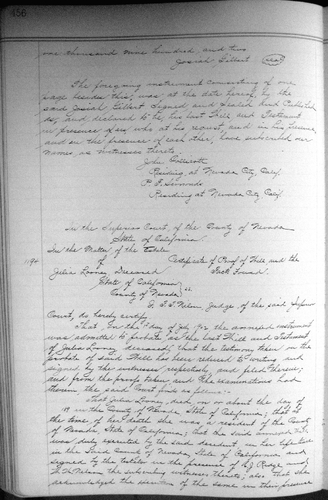 456
one thousand nine hundred and two
Josiah Gilbert (Seal)
The foregoing instrument consisting of one
page besides this, was, at the date hereof, by the
said Josiah Gilbert signed and sealed and published
as, and declared to be, his last Will and Testament
in presence of us who at his request, and in his presence,
and in the presence of each other, have subscribed our
names as witnesses thereto.
John
Residing at Nevada City Calif
Residing at Nevada City Calif
In the Superior Court, of the County of Nevada
State of California
In the Matter of the Estate
of
Certificate of Proof of Will and the
Julia Looney Deceased
Facts Found.
State of California
County of Nevada ss.
I, F. T. Nilon, Judge of the said Superior
Court, do hereby certify
That, on the day of the annexed instrument
was admitted to probate as the Last Will and Testament
of Julia Looney deceased, that the testimony taken on the
probate of said Will has been reduced to writing and
signed by the witnesses respectively and filed therein;
and from the proofs taken and the examinations had
therein, the said Court finds as follows:
That Julia Looney died, on or about the day of
19 in the County of Nevada State of California; that at
the time of her death she was a resident of the County
of Nevada State of California; that the said annexed Will
was duly executed by the said decedent in her lifetime
in the said County of Nevada, State of California and
signed by the testator in the presence of
the subscribing witnesses thereto; also, that she
acknowledged the execution of the same in their presence